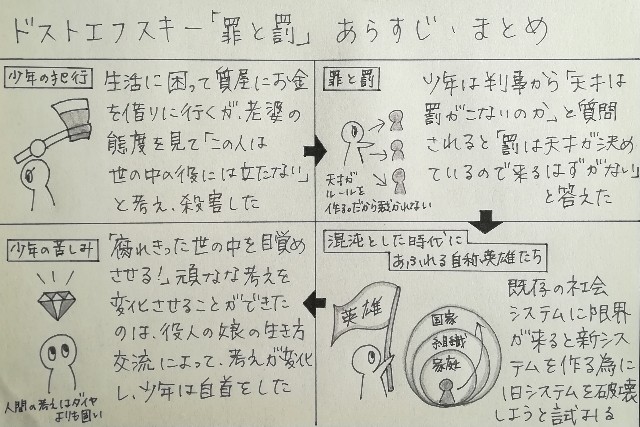 ドストエフスキー「罪と罰」 あらすじ・まとめ
少年の犯行
生活に困って質屋にお金
を借りに行くが、老婆の
態度を見て「この人は
世の中の役には立たない」
と考え、殺害した
罪と罰
天才が
ルールを
作るのだから裁かれない
少年は判事から「天才は
罰がこないのか」と質問
されると「罰は天才が決め
ているので来るはずがない」
と答えた
混沌とした時代に
あふれる自称英雄たち
英雄
国家
組織
家庭
既存の社会
システムに限界
が来ると新シス
テムを作る為に
旧システムを破壊
しようと試みる
少年の苦しみ
人間の考えはダイヤ
よりも固い
「腐れきった世の中を目覚め
させる!」頑なな考えを
変化させることができた
のは、役人の娘の生き方
交流によって、考えが変化
し、少年は自首をした